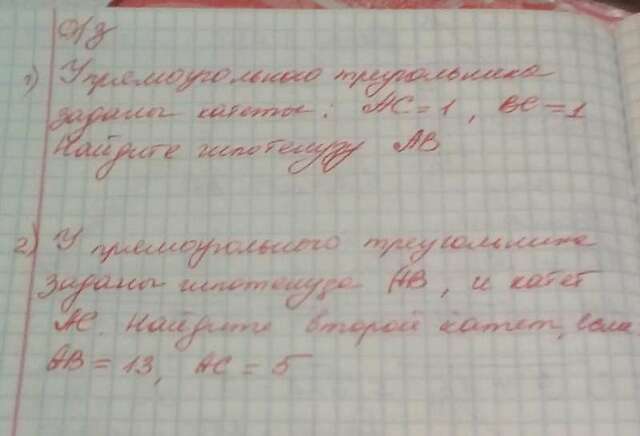 Д/з
1) У прямоугольного треугольника
заданы катеты: AC = 1, BC = 1
Найдите гипотенузу AB
2) У прямоугольного треугольника
заданы гипотенуза AB, и катет
AC. Найдите второй катет, если
AB = 13, AC = 5